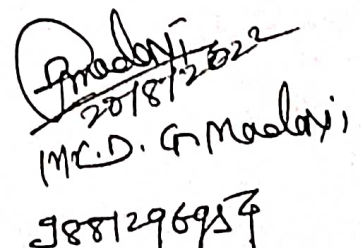 Gmadavi
20/8/2022
Mr. D. G. Madavi,
9881296954